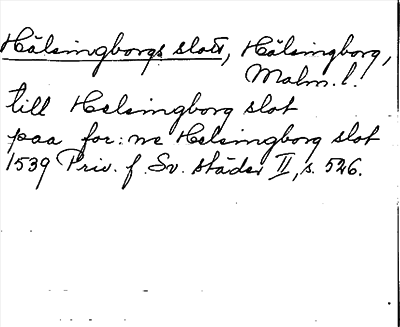 Hälsingborgs slott, Hälsingborg,
Malm. l.
till Helsingborg slot
paa for: ne Helsingborg slot
1539 Priv. f. Sv. städer II, s. 526.